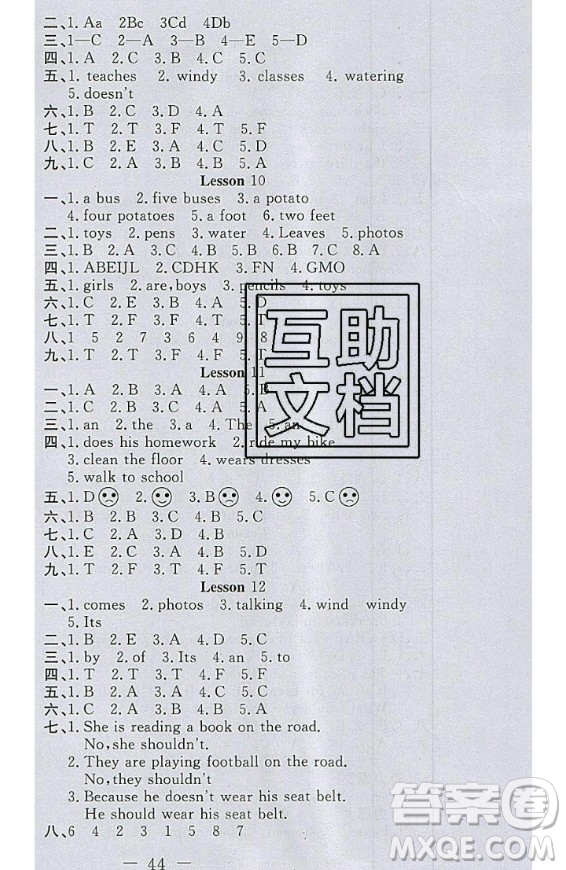 二、1. Aa 2Bc 3Cd 4Db
三、1—C 2—A 3—B 4—E 5—D
四、1. A 2. C 3. B 4. C 5. B
五、1. teaches 2. windy 3. classes 4. watering
5. doesn't
六、1. B 2. C 3. D 4. A
七、1. T 2. T 3. F 4. T 5. F
八、1. B 2. E 3. A 4. C 5. D
九、1. T 2. F 3. F 4. C 5. A
Lesson 10
一、1. a bus 2. five buses 3. a potato
4. four potatoes 5. a foot 6. two feet
二、1. toys 2. pens 3. water 4. Leaves 5. photos
三、1. B 2. A 3. C 4. A 5. B 6. B 7. C 8. A
四、1. ABEIJL 2. CDHK 3. FN 4. GMO
五、1. girls 2. are, boys 3. pencils 4. toys
六、1. C 2. B 3. A 4. A 5. C
七、1. T 2. F 3. F 4. T
八、1 5 2 7 3 6 4 9 8
九、1. T 2. F 3. T 4.
Lesson 11
一、1. A 2. B 3. A 4. A 5. B
二、1. C 2. B 3. C 4. A 5. A
三、1. an 2. the 3. a 4. The 5. an
四、1. does his homework 2. ride my bike
3. clean the floor 4. wears dresses
5. walk to school
五、1. D 2. A 3. B 4. E 5. C
六、1. B 2. B 3. C 4. B 5. A
七、1. C 2. A 3. D 4. B
八、1. E 2. C 3. A 4. B 5. D
九、1. T 2. F 3. T 4. F 5. T
Lesson 12
一、1. comes 2. photos 3. talking 4. wind windy
5. Its
二、1. B 2. E 3. A 4. D 5. C
三、1. by 2. of 3. Its 4. an 5. to
四、1. T 2. T 3. T 4. F 5. F
五、1. C 2. A 3. D 4. E 5. B
六、1. C 2. A 3. C 4. B 5. A
七、1. She is reading a book on the road.
No, she shouldn't.
2. They are playing football on the road.
No, they shouldn't
3. Because he doesn't wear his seat belt.
He should wear his seat belt.
八、6 4 2 3 1 5 8 7
— 44 —
互助
文档
答案圈
MXQE.COM